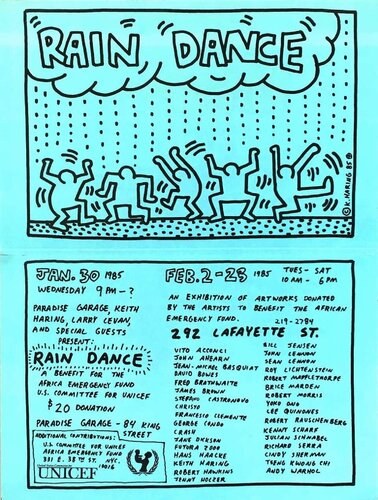 RAIN DANCE
© K. HARING 85
JAN. 30 1985
WEDNESDAY 9 PM - ?
PARADISE GARAGE, KEITH
HARING, LARRY LEVAN,
AND SPECIAL GUESTS
PRESENT:
RAIN DANCE
A BENEFIT FOR THE
AFRICA EMERGENCY FUND
U.S. COMMITTEE FOR UNICEF
$20 DONATION
PARADISE GARAGE - 84 KING
STREET
ADDITIONAL CONTRIBUTIONS:
U.S. COMMITTEE FOR UNICEF
AFRICA EMERGENCY FUND
331 E. 38TH ST. NYC.
10016
UNICEF
FEB. 2-23 1985 TUES - SAT
10 AM - 6 PM
AN EXHIBITION OF ARTWORKS DONATED
BY THE ARTISTS TO BENEFIT THE AFRICAN
EMERGENCY FUND. 219-2784
292 LAFAYETTE ST.
VITO ACCONCI
JOHN AHEARN
JEAN-MICHEL BASQUIAT
DAVID BOWES
FRED BRATHWAITE
JAMES BROWN
STEFANO CASTRONOVO
CHRISTO
FRANCESCO CLEMENTE
GEORGE CONDO
CRASH
JANE DICKSON
FUTURA 2000
HANS HAACKE
KEITH HARING
ROBERT HAWKINS
JENNY HOLZER
BILL JENSEN
JOHN LENNON
SEAN LENNON
ROY LICHTENSTEIN
ROBERT MAPPLETHORPE
BRICE MARDEN
ROBERT MORRIS
YOKO ONO
LEE QUINONES
ROBERT RAUSCHENBERG
KENNY SCHARF
JULIAN SCHNABEL
RICHARD SERRA
CINDY SHERMAN
TSENG KWONG CHI
ANDY WARHOL